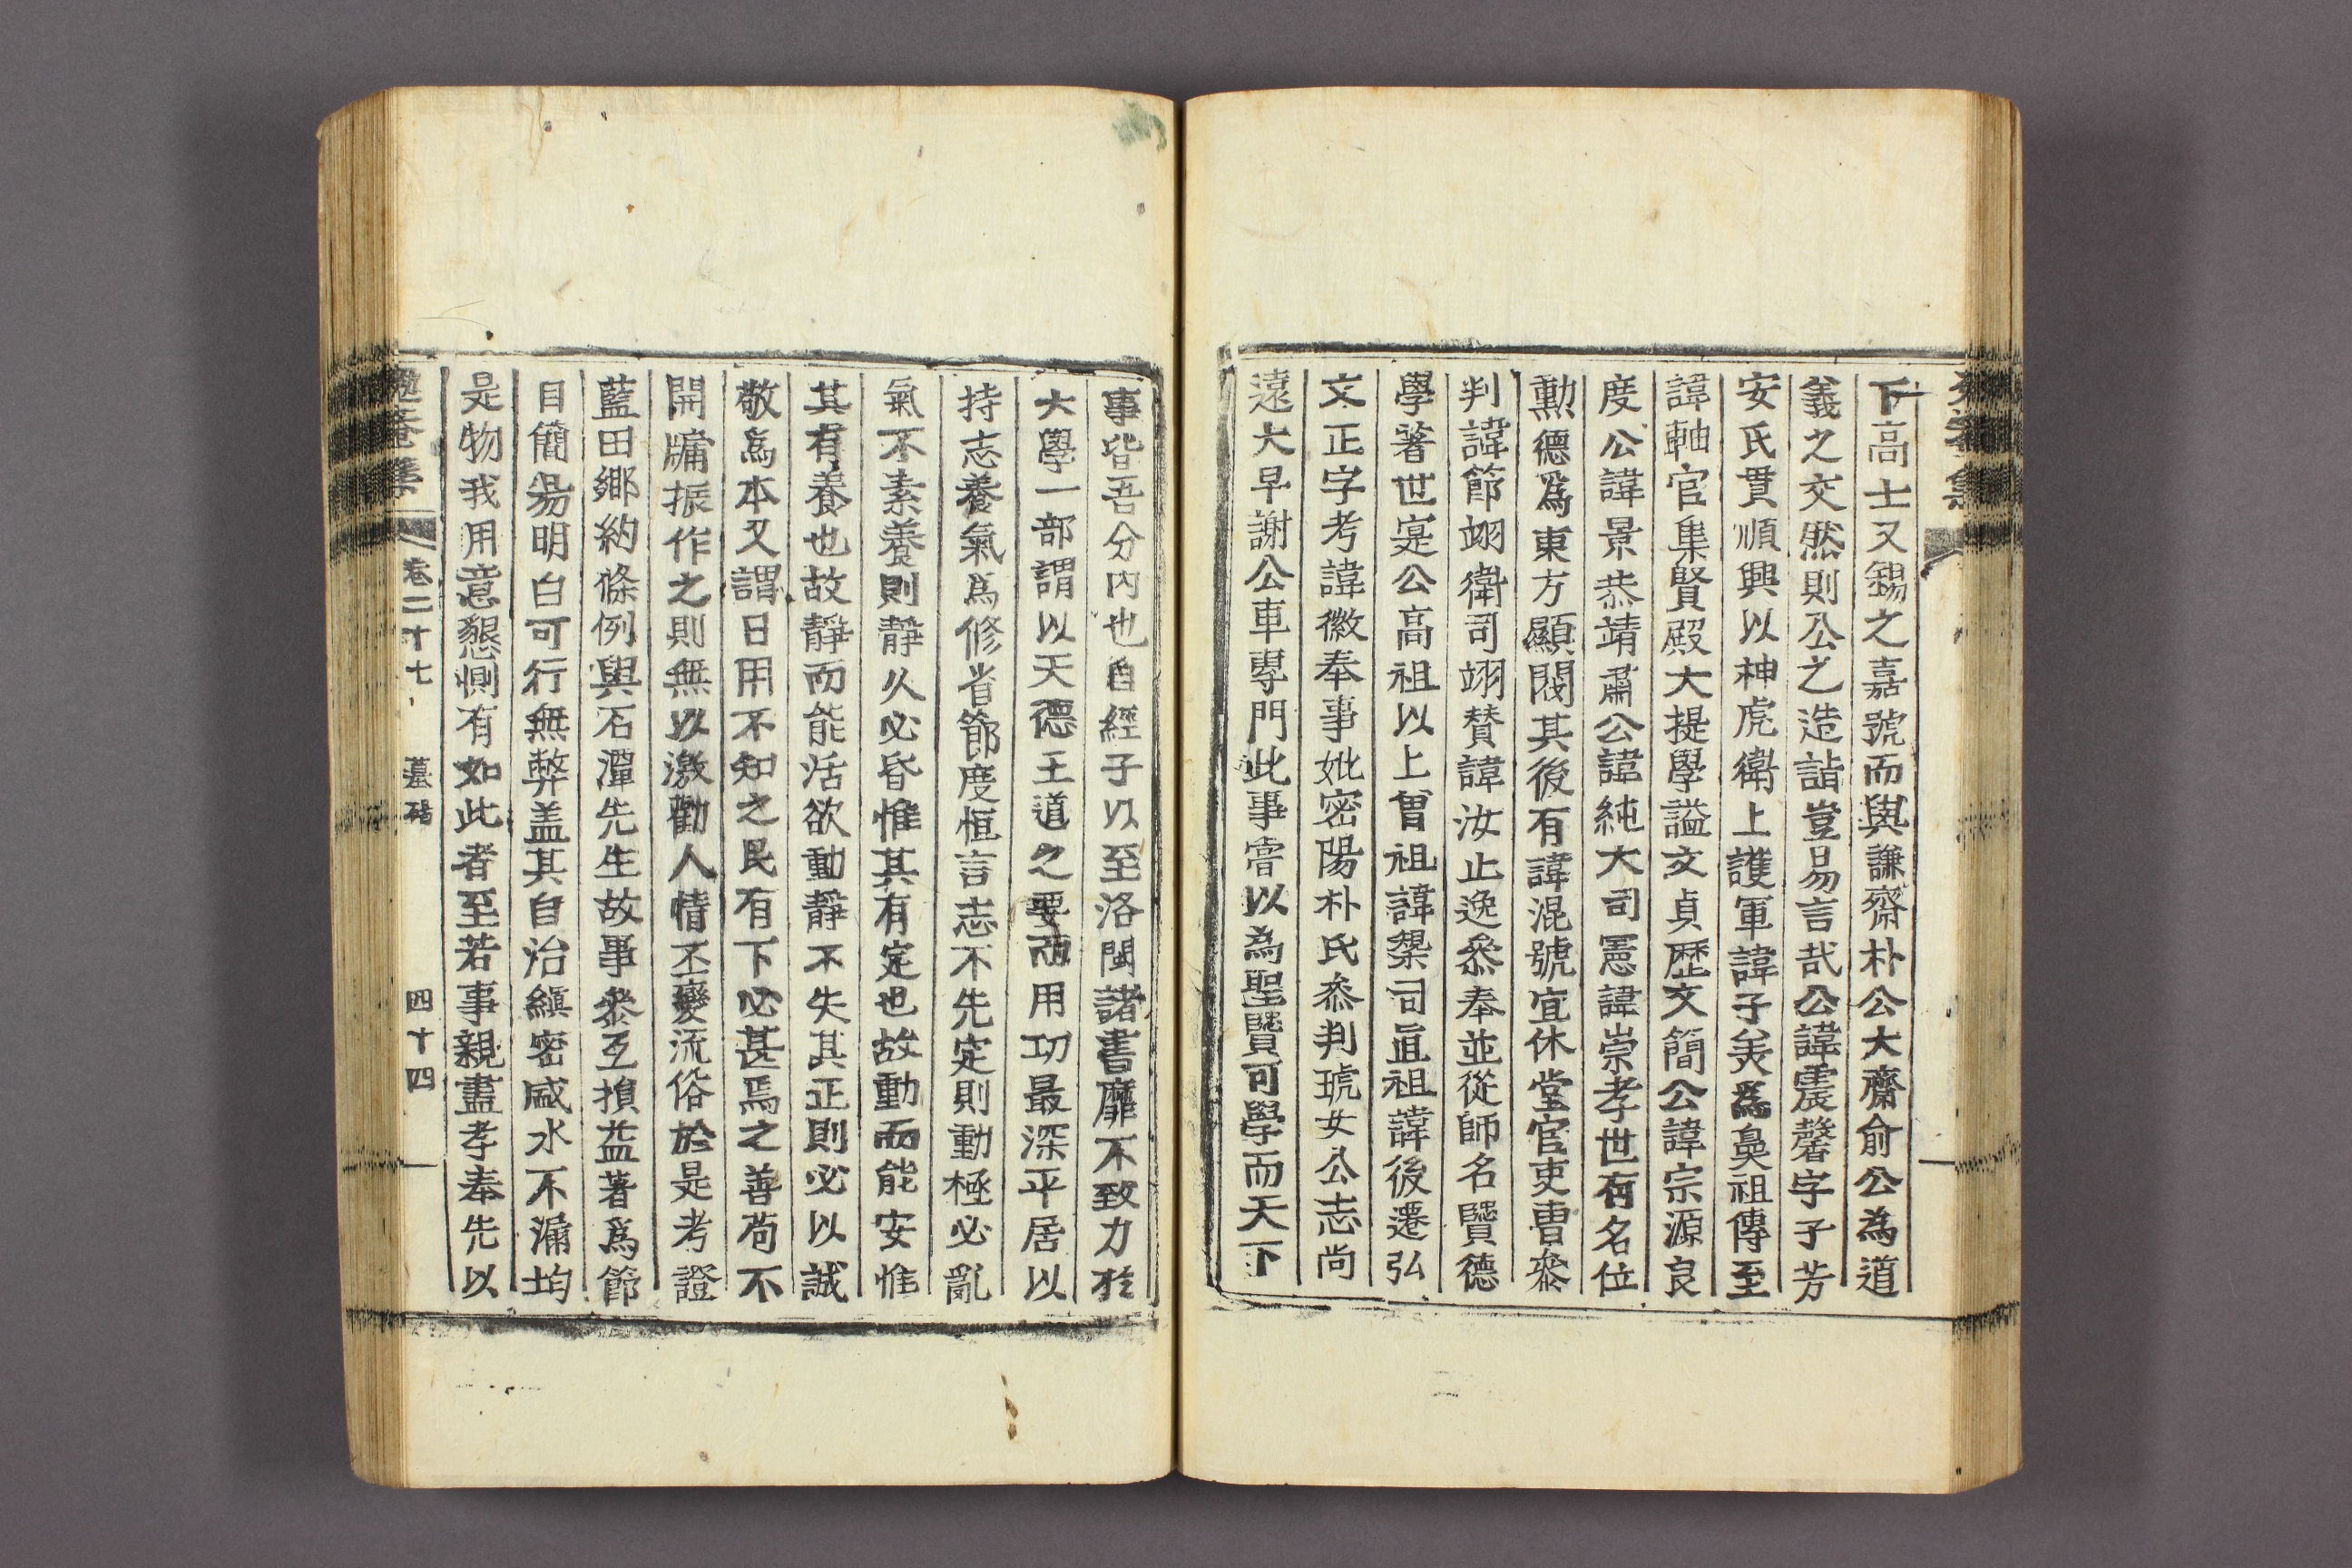 下高士又錫之嘉號而與謙齋朴公大齋俞公為道
義之交然則公之造詣豈易言哉公諱震馨字子芳
安氏貫順興以神虎衛上護軍諱子美爲鼻祖傳至
諱軸官集賢殿大提學謚文貞歷文簡公諱宗源良
度公諱景恭靖肅公諱純大司憲諱崇孝世有名位
勳德爲東方顯閥其後有諱混號宜休堂官吏曹叅
判諱節翊衛司翊贊諱汝止逸叅奉並從師名賢德
學著世寔公高祖以上曾祖諱榘司直祖諱後遷弘
文正字考諱徽奉事妣密陽朴氏叅判琥女公志尚
遠大早謝公車專門此事嘗以為聖賢可學而天下
事皆吾分内也自經子以至洛閩諸書靡不致力於
大學一部謂以天德王道之要而用功最深平居以
持志養氣爲修省節度恒言志不先定則動極必亂
氣不素養則靜久必昏惟其有定也故動而能安惟
其有養也故靜而能活欲動靜不失其正則必以誠
敬爲本又謂日用不知之民有下必甚焉之善苟不
開牖振作之則無以激勸人情丕變流俗於是考證
藍田鄉約條例與石潭先生故事叅互損益著爲節
目簡易明白可行無弊盖其自治縝密咸水不漏均
是物我用意懇惻有如此者至若事親盡孝奉先以
卷二十七 墓碣 四十四